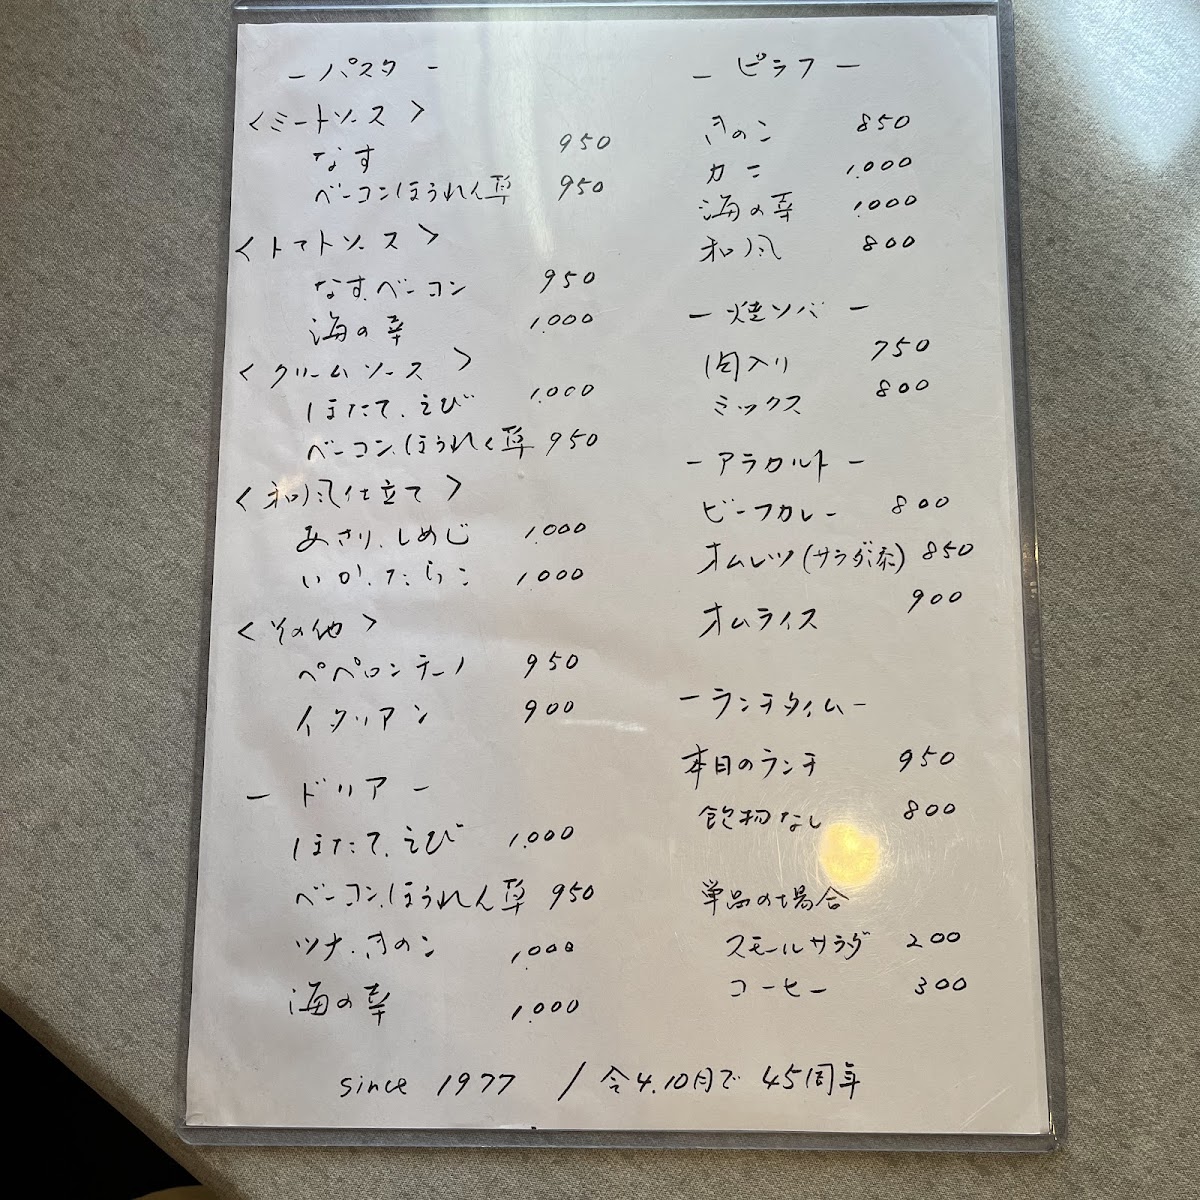 －パスタ－
＜ミートソース＞
なす 950
ベーコン.ほうれん草 950
＜トマトソース＞
なす.ベーコン 950
海の幸 1.000
＜クリームソース＞
ほたて.えび 1.000
ベーコン.ほうれん草 950
＜和風仕立て＞
あさり.しめじ 1.000
いか.たらこ 1.000
＜その他＞
ペペロンチーノ 950
イタリアン 900
－ドリア－
ほたて.えび 1.000
ベーコン.ほうれん草 950
ツナ.きのこ 1.000
海の幸 1.000
－ピラフ－
きのこ 850
カニ 1.000
海の幸 1.000
和風 800
－焼ソバ－
肉入り 750
ミックス 800
－アラカルト－
ビーフカレー 800
オムレツ(サラダ添) 850
オムライス 900
－ランチタイム－
本日のランチ 950
飲物なし 800
単品の場合
スモールサラダ 200
コーヒー 300
since 1977 / 令4.10月で 45周年